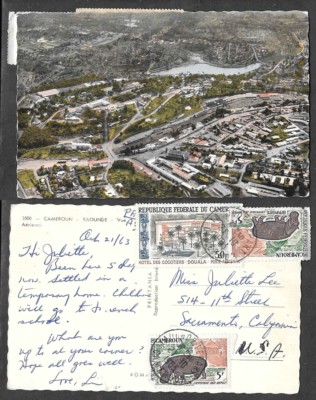 1086 - CAMEROUN - YAOUNDE - Vue
Aérienne
Oct 21/63
Hi Juliette,
Been here 5 days
now. Settled in a
temporary home. Children
will go to a French
school.
What are you
up to at your corner?
Hope all goes well.
Love, L
Miss Juliette Lee
514 - 11th Street
Sacramento, California
U.S.A.
REPUBLIQUE FEDERALE DU CAMEROUN
50F
HOTEL DES COCOTIERS - DOUALA
CAMEROUN
CAMEROUN
5F